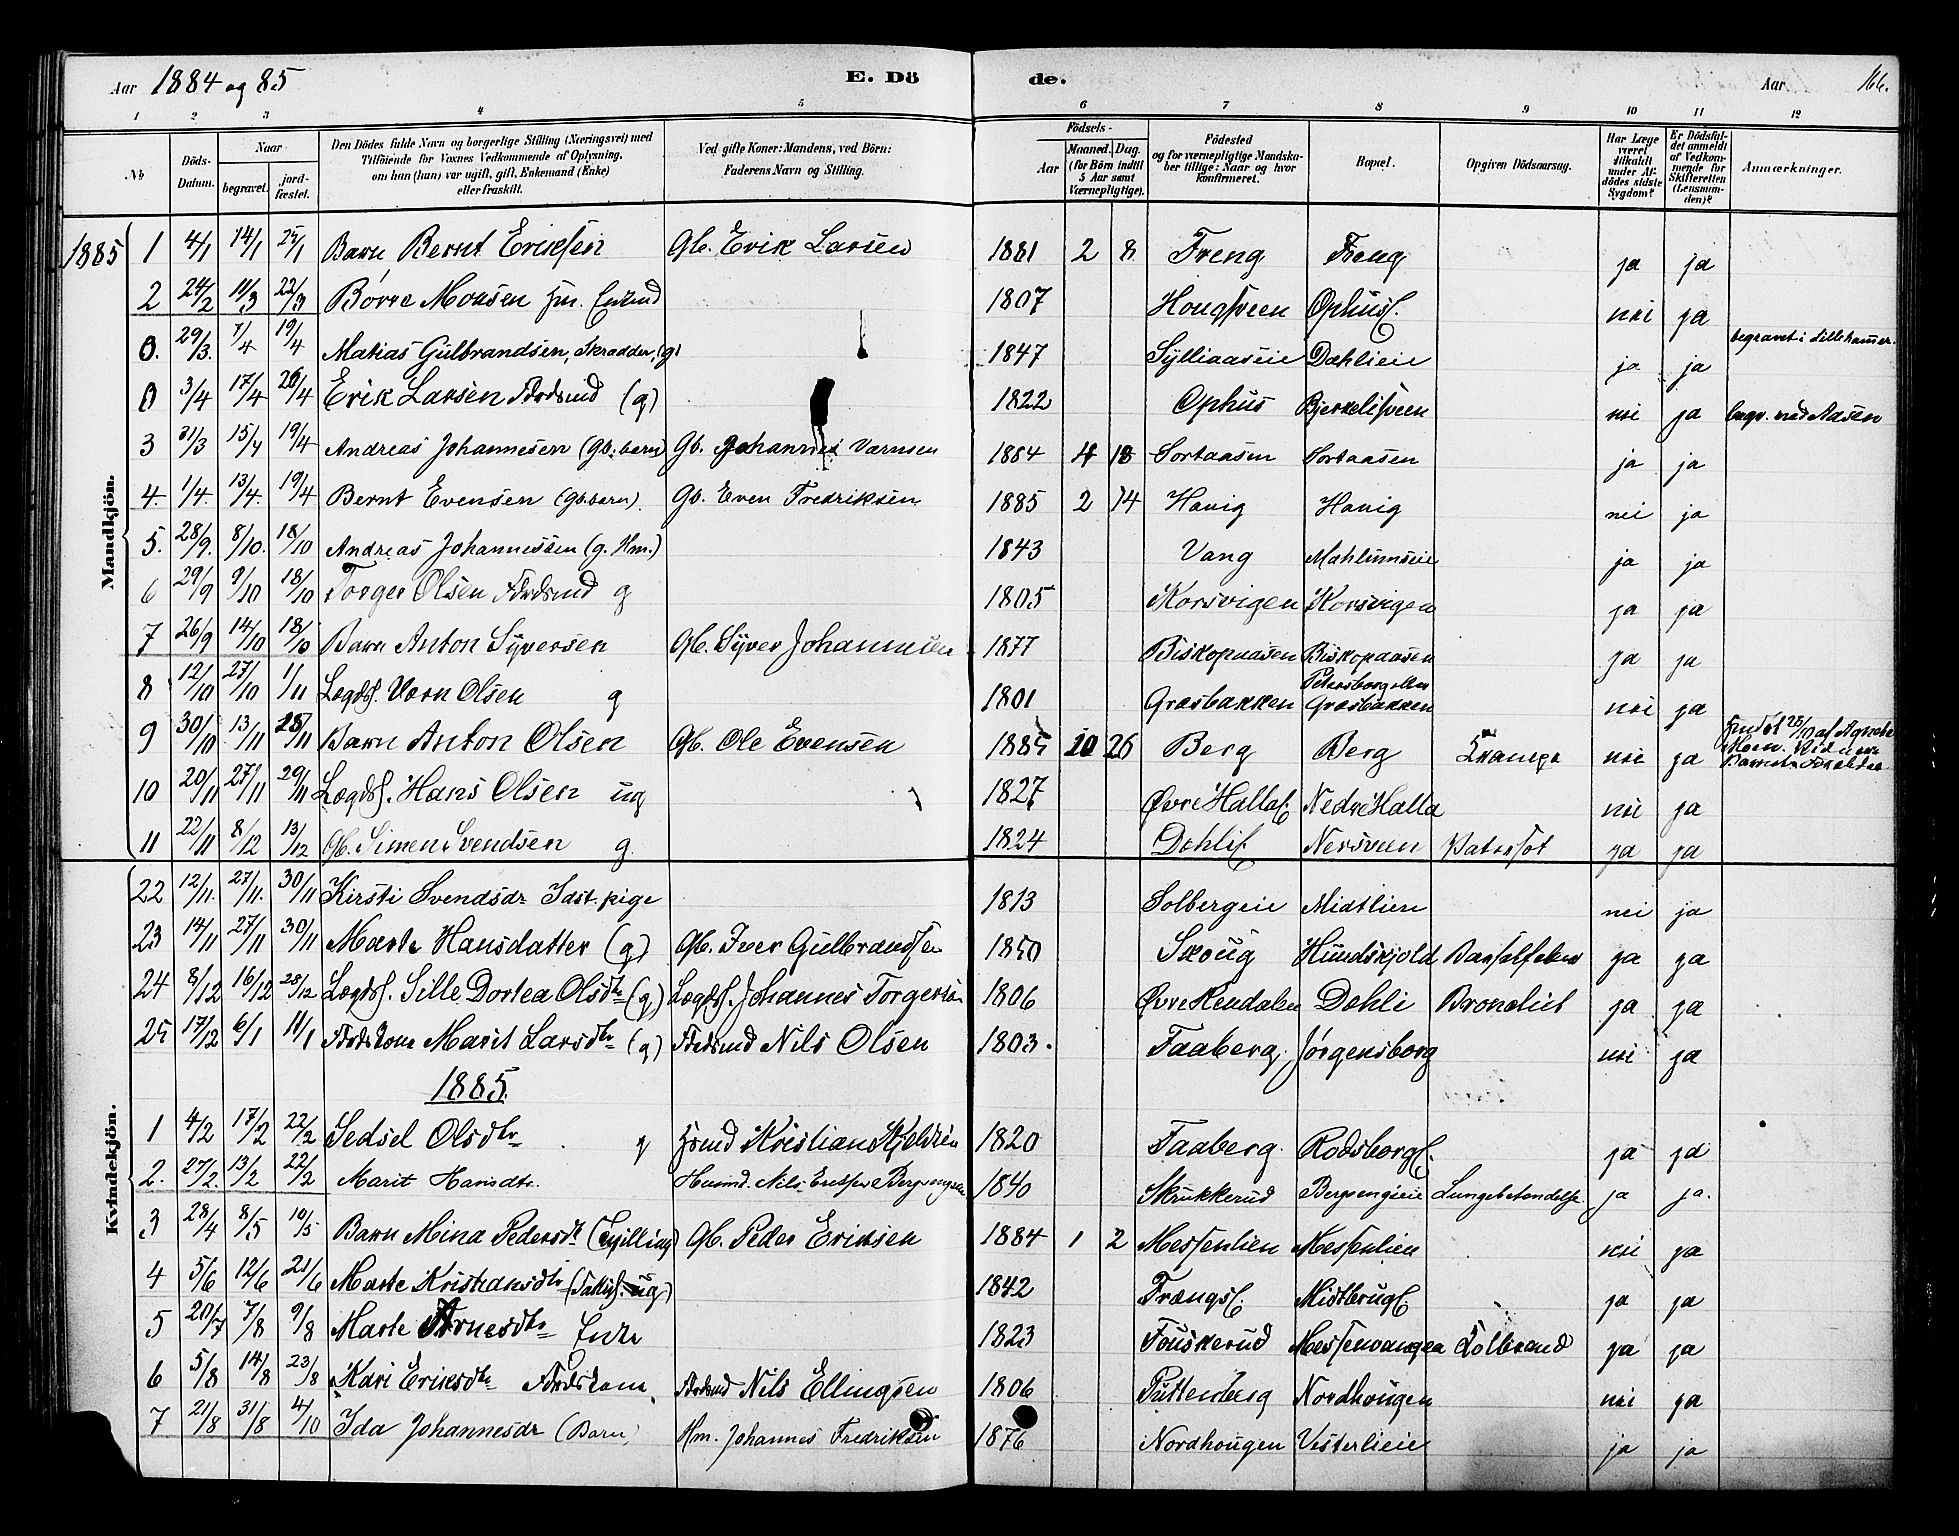 Aar 1884 og 85 E. Dö de. Aar 166.
1 2 3 4 5 6 7 8 9 10 11 12
No Döds-Datum. Naar begravet. jordfæstet. Den Dödes fulde Navn og borgerlige Stilling (Næringsvei) med Tilföiende for Voxnes Vedkommende af Oplysning, om han (hun) var ugift, gift, Enkemand (Enke) eller fraskilt. Ved gifte Koner: Mandens, ved Börn: Faderens Navn og Stilling. Födsels- Aar Maaned. Dag. (for Börn indtil 5 Aar samt Værnepligtige). Födested og for værnepligtige Mandskaber tillige: Naar og hvor konfirmeret. Bopæl. Opgiven Dödsaarsag. Har Læge været tilkaldt under Afdödes sidste Sygdom? Er Dödsfaldet anmeldt af Vedkommende for Skifteretten (Lensmanden)? Anmærkninger.
Mandkjön.
1885 1 4/1 14/1 25/1 Barn Bernt Eriksen Gb. Erik Larsen 1881 2 8 Freng Freng ja ja
2 24/2 11/3 22/3 Børre Monsen Enkmd 1807 Hougsveen Ophus nei ja
0. 29/3. 7/4 19/4 Matias Gulbrandsen, Skradder, (g) 1847 Sylliaaseie Dæhlieie ja ja begravet i Lillehammer.
0 3/4 17/4 26/4 Erik Larsen Fdrdsmd (g) 1822 Ophus Bjerkelisveen nei ja begr. ved Aasen
3 31/3 15/4 19/4 Andreas Johannesen (Gb. barn) Gb. Johannes Varnsen 1884 4 18 Sortaasen Sortaasen ja ja
4. 1/4. 13/4. 19/4 Bernt Evensen (Gb. barn). Gb. Even Fredriksen 1885 2 14 Hovig Hovig nei ja
5. 28/9. 8/10. 18/10 Andreas Johannessen (g. Hm.) 1843 Vang Mæhlumseie ja ja
6 29/9 9/10 18/10 Torger Olsen Fdrdsmd g 1805 Korsvigen Korsvigen ja ja
7 26/9 14/10 18/10 Barn Anton Syversen Gb. Syver Johannesen 1877 Biskopaasen Biskopaasen ja ja
8 12/10 27/10 1/11 Lægds. Vern Olsen g 1801 Græsbakken Petersborg eller Græsbakken nei ja
9 30/10 13/11 15/11 Barn Anton Olsen Gb. Ole Evensen 1885 10 26 Berg Berg Krampe nei ja Hjdøbt 28/10 af Agnethe Moen. Vidner Barnets Forældre
10 20/11 27/11 29/11 Lægds. Hans Olsen ug 1827 Øvre Halla Nedre Halla nei ja
11 22/11 8/12 13/12 Gb. Simen Svendsen g 1824 Dehli Nersveen ja ja
Kvindekjön.
22 12/11. 27/11. 30/11 Kirsti Svendsdr Indst. pige 1813 Solbergeie Midtlien nei ja
23 14/11 27/11 30/11 Marte Hansdatter (g) Gb. Iver Gulbrandsen 1850 Skoug Hundskjold Barselfeber ja ja
24 8/12 16/12 28/12 Lægds. Sille Dortea Olsdtr (g) Lægds. Johannes Torgersen 1806 Øvre Rendalen Dehli Bronchit ja ja
25 17/12 6/1 11/1 Fdrdskone Marit Larsdtr (g) Fdrdsmd Nils Olsen 1803. Faaberg Jørgensborg nei ja
1885.
1 4/2 17/2 22/2 Sedsel Olsdtr g Kristian Kjeldsen 1820 Faaberg Rodsborg ja ja
2. 27/2. 13/2 22/2 Marit Hansdtr. Husmd. Nils 1840 Skrukkerud Bergsengeie Lungebetændelse ja ja.
3 28/4 8/5 10/5 Barn Mina Pedersdtr (Tvilling) Gb. Peder Eriksen 1884 1 2 Messenlien Messenlien nei ja
4 5/6 12/6 21/6 Marte Kristiansdtr (Fattigl. ug) 1842 Frængs Midtbrug ja ja
5 20/7 7/8 9/8 Marte Arnesdtr Enke 1823 Fouskerud Messenvangen Kolbrand ja ja
6 5/8 14/8 23/8 Kari Eriksdtr Fdrdskone Fdrdsmd Nils Ellingsen 1806 Puttenberg Nordhougen nei ja
7 21/8 31/8 4/10 Ida Johannesdr (Barn) Hm. Johannes Fredriksen 1876 Nordhougen Vesterlieie ja ja